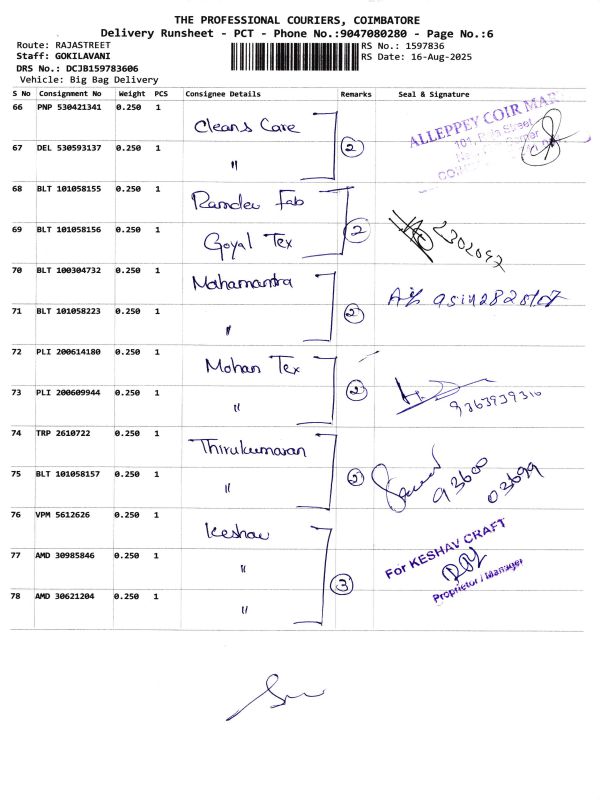 THE PROFESSIONAL COURIERS, COIMBATORE
Delivery Runsheet - PCT - Phone No.:9047080280 - Page No.:6
Route: RAJASTREET RS No.: 1597836
Staff: GOKILAVANI RS Date: 16-Aug-2025
DRS No.: DCJB159783606
Vehicle: Big Bag Delivery
S No Consignment No Weight PCS Consignee Details Remarks Seal & Signature
66 PNP 530421341 0.250 1 Cleans Care
ALLEPPEY COIR MAR
101, Raja Street
67 DEL 530593137 0.250 1 " 2
68 BLT 101058155 0.250 1 Ramdev Fab
69 BLT 101058156 0.250 1 Goyal Tex 2 2302092
70 BLT 100304732 0.250 1 Mahamantra
71 BLT 101058223 0.250 1 " 2
72 PLI 200614180 0.250 1 Mohan Tex
73 PLI 200609944 0.250 1 " 2 9363939310
74 TRP 2610722 0.250 1 Thirukumaran
75 BLT 101058157 0.250 1 " 2 93600
03699
76 VPM 5612626 0.250 1 Keshav
77 AMD 30985846 0.250 1 " 3 For KESHAV CRAFT
78 AMD 30621204 0.250 1 " Proprietor / Manager